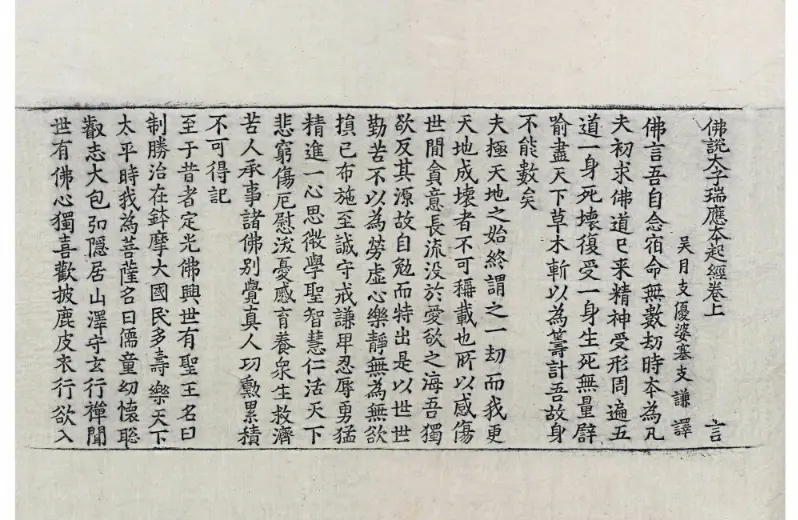 佛說太子瑞應本起經卷上 言
吳月支優婆塞支謙譯
佛言吾自念宿命無數劫時本為凡
夫初求佛道已来精神受形周遍五
道一身死壞復受一身生死無量辟
喻盡天下草木斬以為籌計吾故身
不能數矣
夫極天地之始終謂之一劫而我更
天地成壞者不可稱載也所以感傷
世間貪意長流没於愛欲之海吾獨
欲反其源故自勉而特出是以世世
勤苦不以為勞虛心樂靜無為無欲
損己布施至誠守戒謙卑忍辱勇猛
精進一心思微學聖智慧仁活天下
悲窮傷厄慰沷憂慼育養衆生救濟
苦人承事諸佛别覺真人功勳累積
不可得記
至于昔者定光佛興世有聖王名曰
制勝治在鉢摩大國民多壽樂天下
太平時我為菩薩名曰儒童幼懷聡
叡志大包弘隱居山澤守玄行禪聞
世有佛心獨喜歡披鹿皮衣行欲入